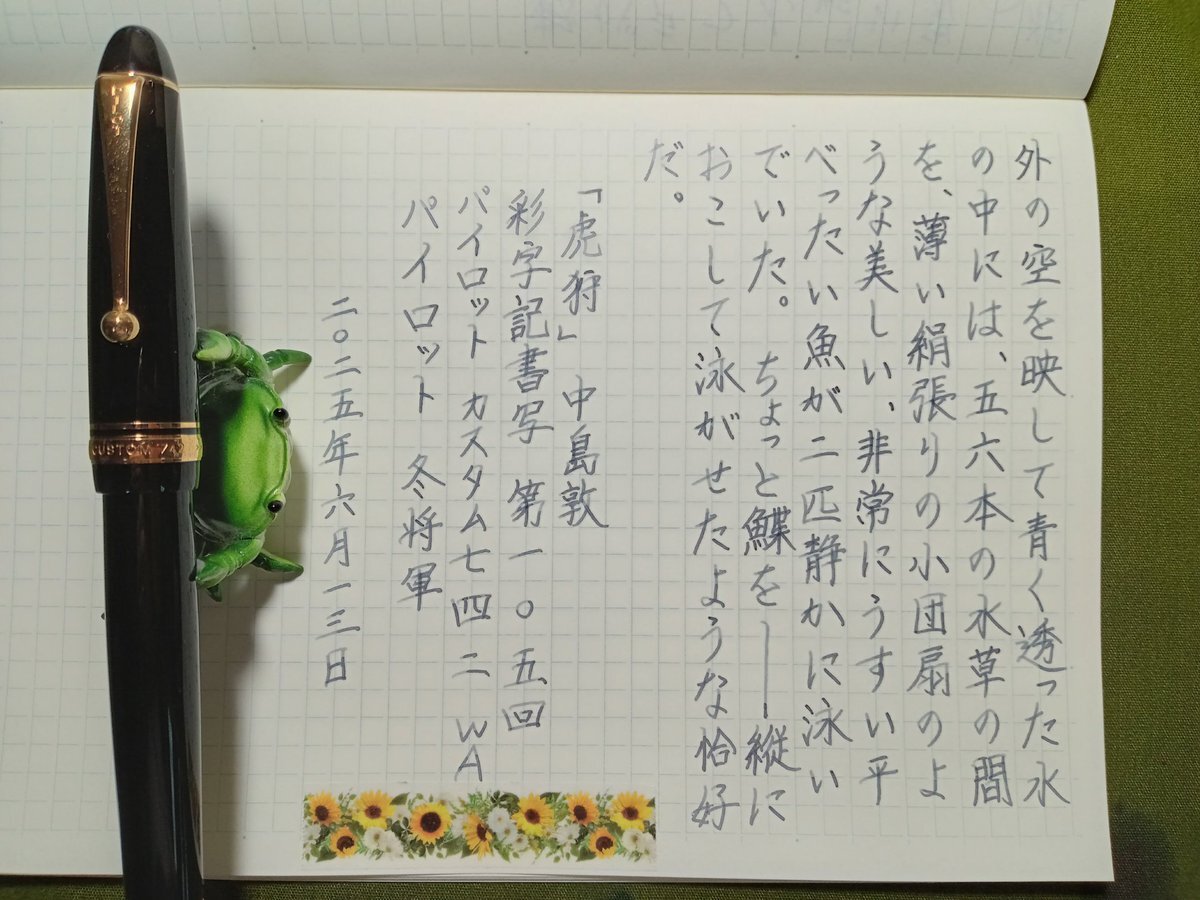 外の空を映して青く透った水
の中には、五六本の水草の間
を、薄い絹張りの小団扇のよ
うな美しい、非常にうすい平
べったい魚が二匹静かに泳い
でいた。ちょっと鰈を――縦に
おこして泳がせたような恰好
だ。
「虎狩」 中島敦
彩字記書写 第一〇五回
パイロット カスタム七四二 WA
パイロット 冬将軍
二〇二五年六月一三日
CUSTOM 74